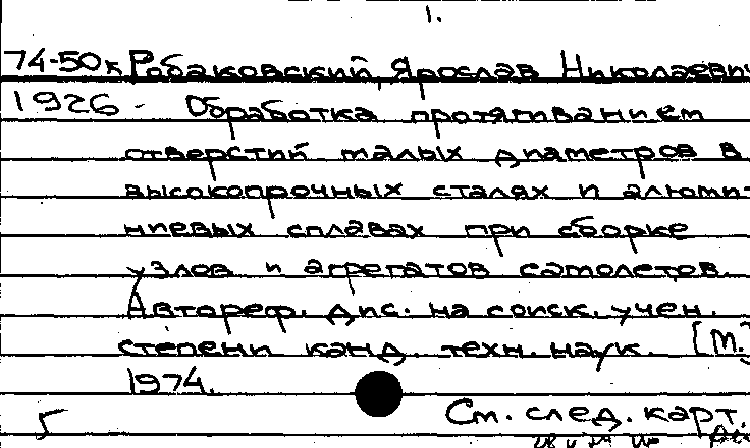 1.
74-50к Робаковский, Ярослав Николаевич
1926- Обработка протягиванием
отверстий малых диаметров в
высокопрочных сталях и алюми-
ниевых сплавах при сборке
узлов и агрегатов самолетов.
Автореф. дис. на соиск. учен.
степени канд. техн. наук. [М.]
1974.
5 См. след. карт.